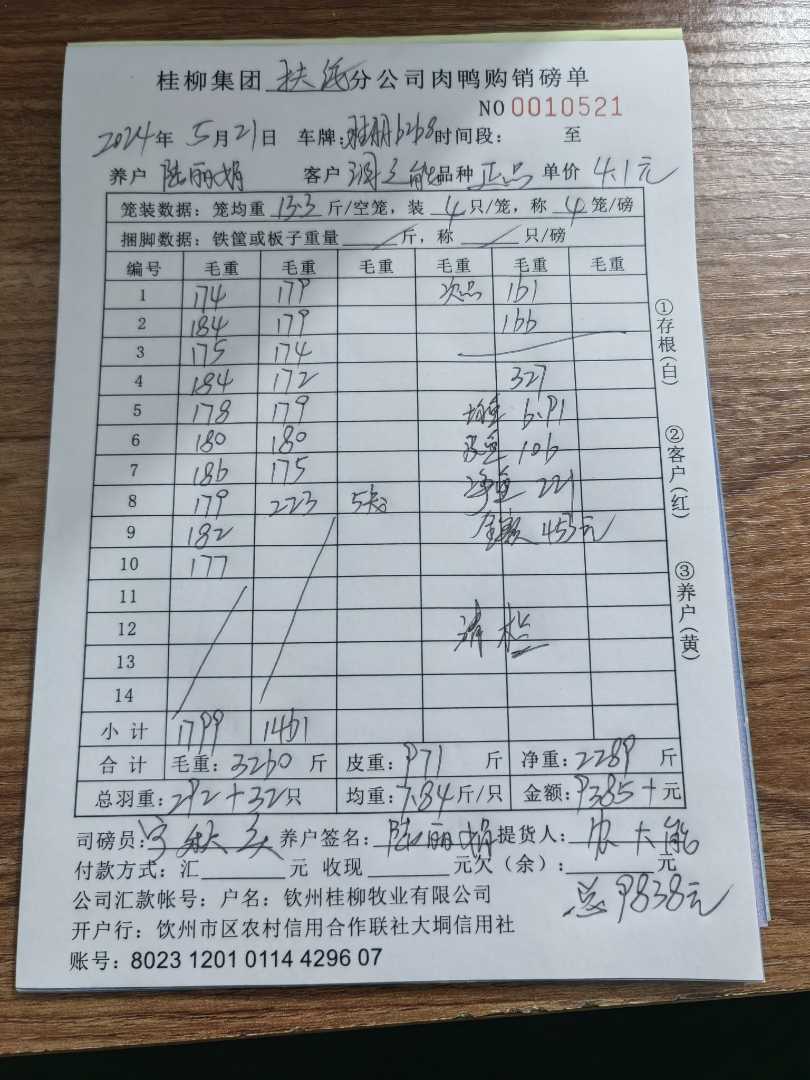 桂柳集团 扶绥 分公司肉鸭购销磅单
NO 0010521
2024年 5月21日 车牌: 6268 时间段: 至
养户 陆丽娟 客户 品种 正品 单价 4.1元
笼装数据：笼均重 13.3 斤/空笼，装 4 只/笼，称 4 笼/磅
捆脚数据：铁筐或板子重量 / 斤，称 / 只/磅
编号 毛重 毛重 毛重 毛重 毛重 毛重
1 174 179 次品 161
2 184 179 166
3 175 174
4 184 172 327
5 178 179 均重 6.91
6 180 180 皮重 106
7 186 175 净重 221
8 179 223 5笼
9 182 金额 453元
10 177
11
12
13
14
小计 1799 1461
合计 毛重：3260 斤 皮重：971 斤 净重：2289 斤
总羽重：292+32只 均重：7.84斤/只 金额：9385+元
司磅员： 养户签名：陆丽娟 提货人：
付款方式：汇 元 收现 元欠（余）： 元
总9838元
公司汇款帐号：户名：钦州桂柳牧业有限公司
开户行：钦州市区农村信用合作联社大垌信用社
账号：8023 1201 0114 4296 07
①存根(白)
②客户(红)
③养户(黄)